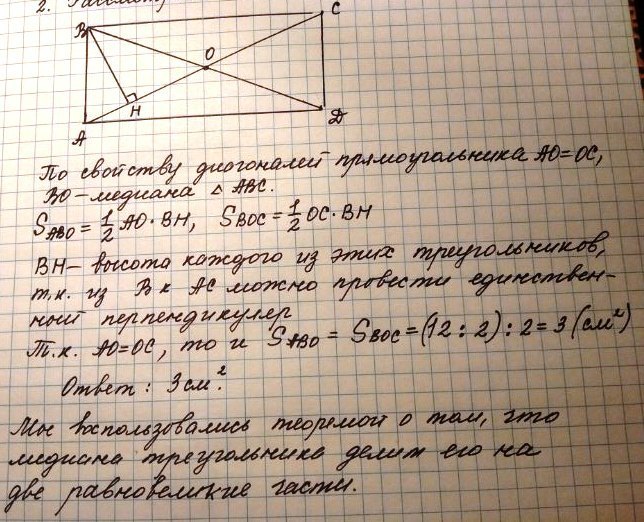 2. Рассмотр
B
C
O
H
A
D
По свойству диагоналей прямоугольника AO=OC,
BO – медиана △ ABC.
S_ABO = 1/2 AO · BH, S_BOC = 1/2 OC · BH
BH – высота каждого из этих треугольников,
т.к. из B к AC можно провести единствен-
ный перпендикуляр
Т.к. AO=OC, то и S_ABO = S_BOC = (12 : 2) : 2 = 3 (см²)
Ответ: 3 см².
Мы воспользовались теоремой о том, что
медиана треугольника делит его на
две равновеликие части.